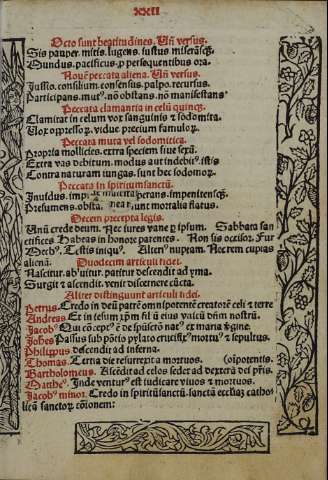 XXII
Octo sunt beatitudines. Uñ versus.
Sis pauper. mitis. lugens. iustus miserãsqz.
Mundus. pacificus. p persequentibus ora.
Nouẽ peccata aliena. Uñ versus.
Iussio. consilium. consensus. palpo. recursus.
Participans. mutꝰ. nõ obstans. nõ manifestansꝰ
Peccata clamantia in celũ quincz.
Clamitat in celum vox sanguinis et sodomita.
Uox oppressoꝝ. vidue. precium famuloꝝ.
Peccata mura vel sodomitica.
Propria mollicies. extra speciem siue sexũ.
Extra vas debitum. modus aut indebitꝰ. istis
Contra naturam iungas. sunt hec sodomoꝝ.
Peccata in spiritumsanctũ.
Inuidus. imp perans. impenitensqz.
Presumens. obsti unt mortalia flatus.
Decem precepta legis.
Unũ crede deum. Nec iures vane p ipsum. Sabbata san
ctifices Habeas in honore parentes. Non sis occisor. Fur
Mechꝰ. Testis iniquꝰ. Alterꝰ nuptam. Nec rem cupias
alienã Duodecim articuli fidei.
Nascitur. abluitur. patitur descendit ad yma.
Surgit et ascendit. venit discernere cũcta.
Aliter distinguunt articuli fidei.
Petrus. Credo in deũ patrẽ omnipotentẽ creatorẽ celi et terre
Andreas Et in iesum xp̃m filiũ eius vnicũ dñm nostrũ
Jacobꝰ Qui cõceptꝰ ẽ de spũsctõ natꝰ ex maria vgine.
Johẽs Passus sub põtio pylato crucifixꝰ mortuꝰ et sepultus.
Philippus descendit ad inferna.
Thomas. Tercia die resurrexit a mortuos. (oipotentis.
Bartholomeus. Ascẽdit ad celos sedet ad dexterã dei pr̃is.
Mattheꝰ. Inde venturꝰ est iudicare viuos et mortuos.
Jacobꝰ minor. Credo in spiritũsanctũ. sanctã eccliaz catho
licã sanctoꝝ cõionem: